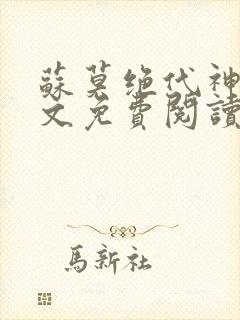 蘇莫绝代神
文免費閱讀
馬新社